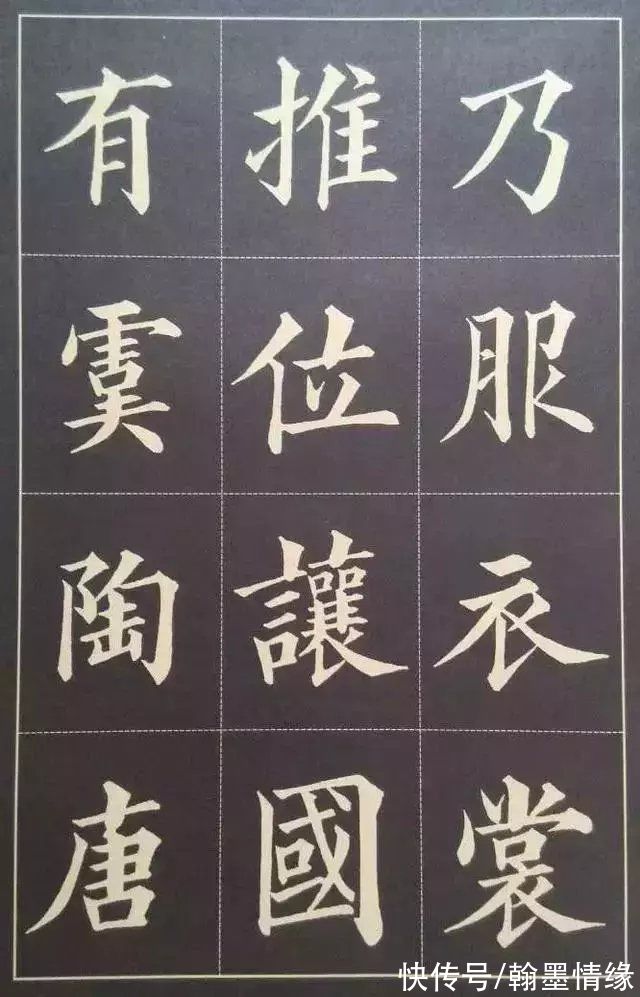 乃服衣裳
推位讓國
有虞陶唐
快传号/翰墨情缘